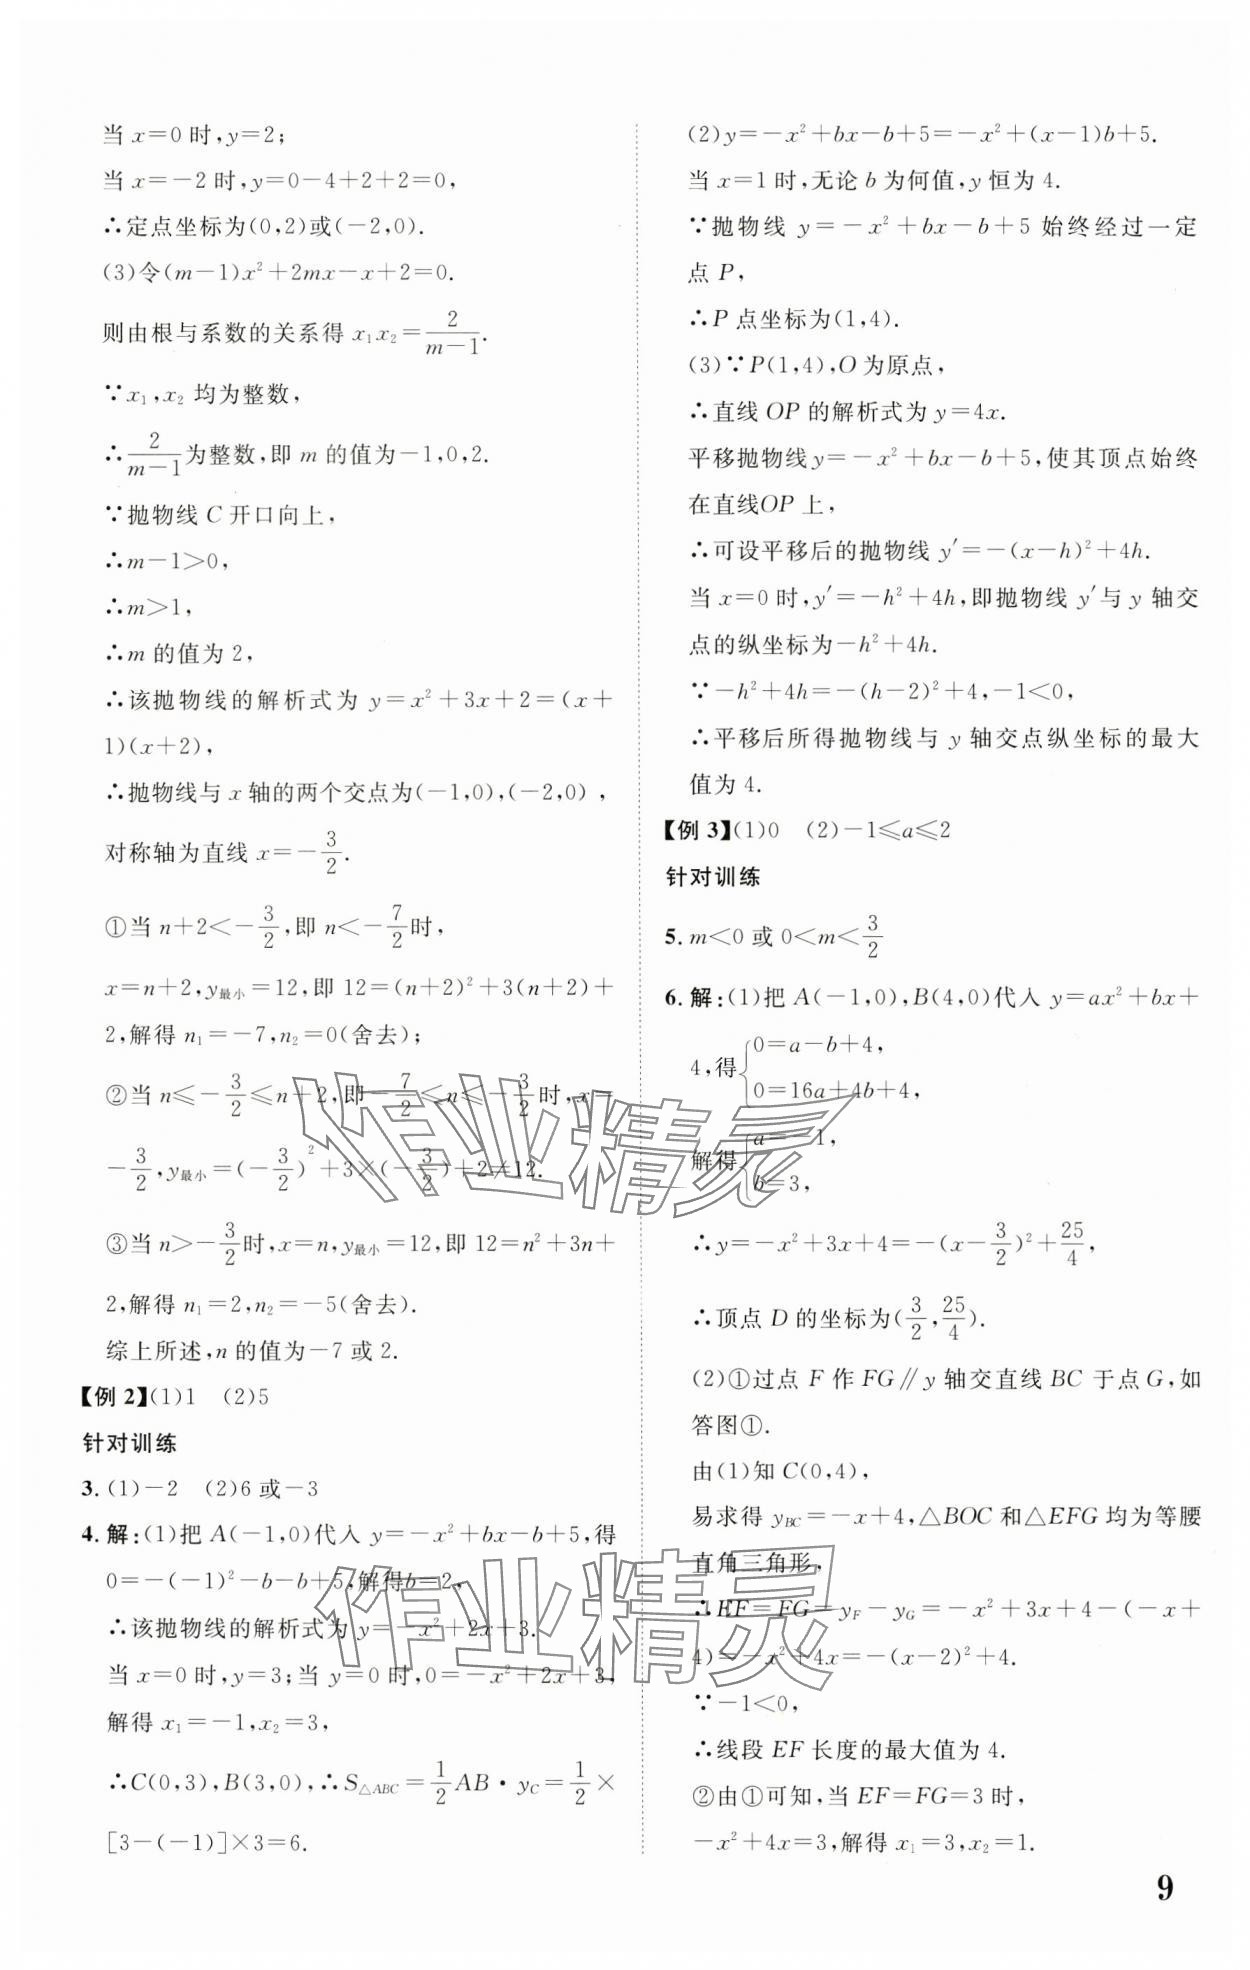 当 x=0 时,y=2;
当 x=-2 时,y=0-4+2+2=0,
∴定点坐标为(0,2)或(-2,0).
(3)令(m-1)x²+2mx-x+2=0.
则由根与系数的关系得 x₁x₂=2/(m-1).
∵x₁,x₂ 均为整数,
∴2/(m-1)为整数,即 m 的值为-1,0,2.
∵抛物线 C 开口向上,
∴m-1>0,
∴m>1,
∴m 的值为 2,
∴该抛物线的解析式为 y=x²+3x+2=(x+
1)(x+2),
∴抛物线与 x 轴的两个交点为(-1,0),(-2,0),
对称轴为直线 x=-3/2.
①当 n+2<-3/2,即 n<-7/2时,
x=n+2,y最小=12,即 12=(n+2)²+3(n+2)+
2,解得 n₁=-7,n₂=0(舍去);
②当 n≤-3/2≤n+2,即-7/2≤n≤-3/2时,x=
-3/2,y最小=(-3/2)²+3×(-3/2)+2≠12.
③当 n>-3/2时,x=n,y最小=12,即 12=n²+3n+
2,解得 n₁=2,n₂=-5(舍去).
综上所述,n 的值为-7 或 2.
【例 2】(1)1 (2)5
针对训练
3. (1)-2 (2)6 或-3
4. 解:(1)把 A(-1,0)代入 y=-x²+bx-b+5,得
0=-(-1)²-b-b+5,解得b=2,
∴该抛物线的解析式为 y=-x²+2x+3.
当 x=0 时,y=3;当 y=0 时,0=-x²+2x+3,
解得 x₁=-1,x₂=3,
∴C(0,3),B(3,0),∴S△ABC=1/2AB·yC=1/2×
[3-(-1)]×3=6.
(2)y=-x²+bx-b+5=-x²+(x-1)b+5.
当 x=1 时,无论 b 为何值,y 恒为 4.
∵抛物线 y=-x²+bx-b+5 始终经过一定
点 P,
∴P 点坐标为(1,4).
(3)∵P(1,4),O 为原点,
∴直线 OP 的解析式为 y=4x.
平移抛物线y=-x²+bx-b+5,使其顶点始终
在直线OP 上,
∴可设平移后的抛物线 y′=-(x-h)²+4h.
当 x=0 时,y′=-h²+4h,即抛物线 y′与 y 轴交
点的纵坐标为-h²+4h.
∵-h²+4h=-(h-2)²+4,-1<0,
∴平移后所得抛物线与 y 轴交点纵坐标的最大
值为 4.
【例 3】(1)0 (2)-1≤a≤2
针对训练
5. m<0 或 0<m<3/2
6. 解:(1)把 A(-1,0),B(4,0)代入 y=ax²+bx+
4,得{0=a-b+4,
0=16a+4b+4,
解得{a=-1,
b=3,
∴y=-x²+3x+4=-(x-3/2)²+25/4,
∴顶点 D 的坐标为(3/2,25/4).
(2)①过点 F 作 FG∥y 轴交直线 BC 于点 G,如
答图①.
由(1)知 C(0,4),
易求得 yBC=-x+4,△BOC 和△EFG 均为等腰
直角三角形,
∴EF=FG=yF-yG=-x²+3x+4-(-x+
4)=-x²+4x=-(x-2)²+4.
∵-1<0,
∴线段 EF 长度的最大值为 4.
②由①可知,当 EF=FG=3 时,
-x²+4x=3,解得 x₁=3,x₂=1.
作业精灵
作业精灵
9